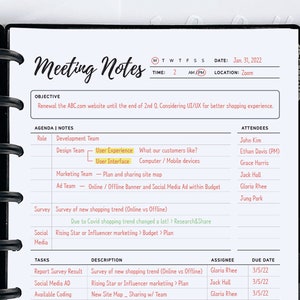 Meeting Notes
M T W T F S S DATE: Jan. 31, 2022
TIME: 2 AM/PM LOCATION: Zoom
OBJECTIVE
Renewal the ABC.com website until the end of 2nd Q. Considering UI/UX for better shopping experience.
AGENDA | NOTES ATTENDEES
Role Development Team John Kim
Design Team User Experience What our customers like? Ethan Davis (PM)
User Interface Computer / Mobile devices Grace Harris
Marketing Team — Plan and sharing site map Jack Hall
Ad Team — Online / Offline Banner and Social Media Ad within Budget Gloria Rhee
Jung Park
Survey Survey of new shopping trend (Online vs Offline)
Due to Covid shopping trend changed a lot! > Research&Share
Social Media Rising Star or Influencer marketing > Budget > Plan
TASKS DESCRIPTION ASSIGNEE DUE DATE
Report Survey Result Survey of new shopping trend (Online vs Offline) Gloria Rhee 3/5/22
Social Media AD Rising Star or Influencer marketing > Plan Jack Hall 3/5/22
Available Coding New Site Map _ Sharing w/ Team Gloria Rhee 3/5/22